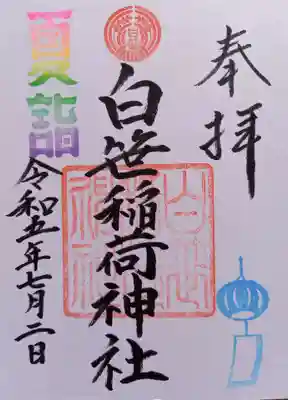 奉拝
白笹稲荷神社
夏詣
令和五年七月二日